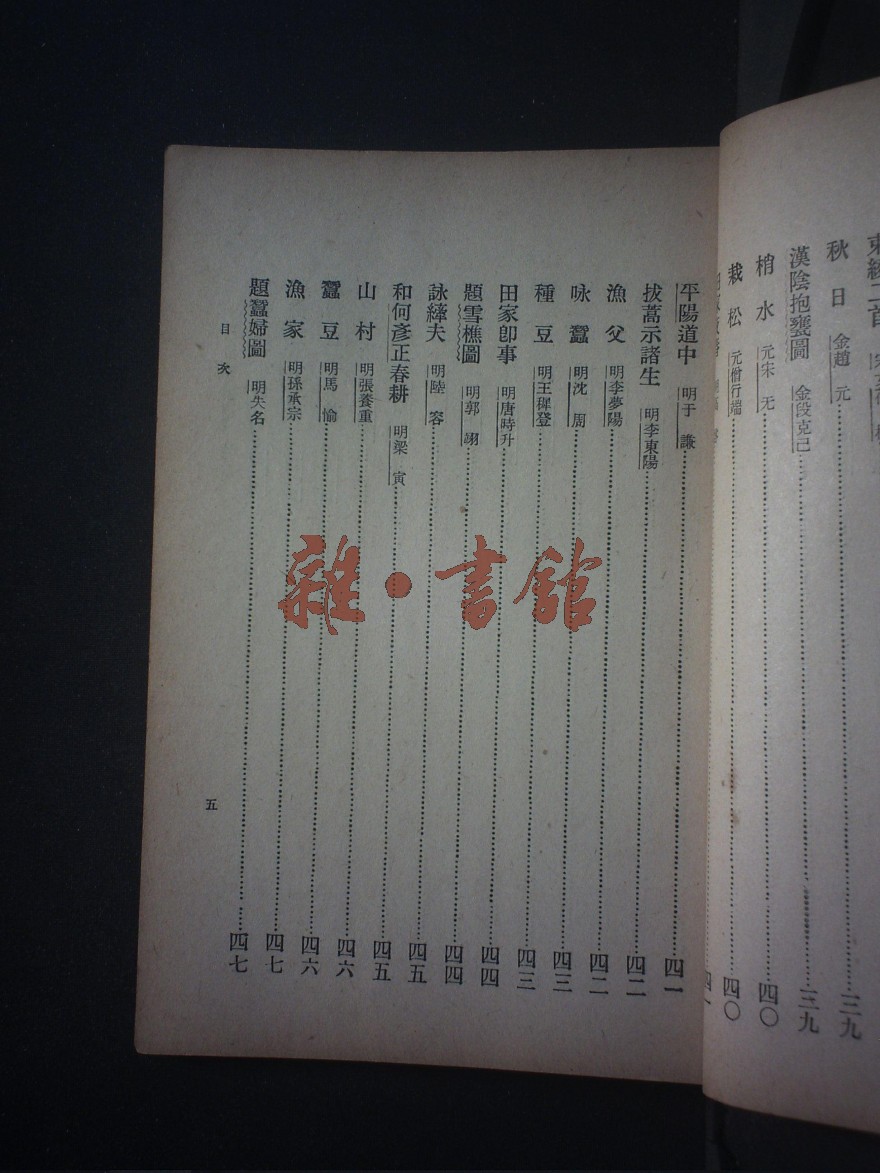 秋日 金趙元 三九
漢陰抱甕圖 金段克己 三九
梢水 元宋无 四〇
栽松 元僧行端 四〇
平陽道中 明于謙 四一
拔蒿示諸生 明李東陽 四二
漁父 明李夢陽 四二
咏蠶 明沈周 四三
種豆 明王穉登 四三
田家卽事 明唐時升 四四
題雪樵圖 明郭翊 四四
詠縴夫 明陸容 四五
和何彥正春耕 明梁寅 四五
山村 明張養重 四六
蠶豆 明馬愉 四六
漁家 明孫承宗 四七
題蠶婦圖 明失名 四七
目次
五
雜·書館